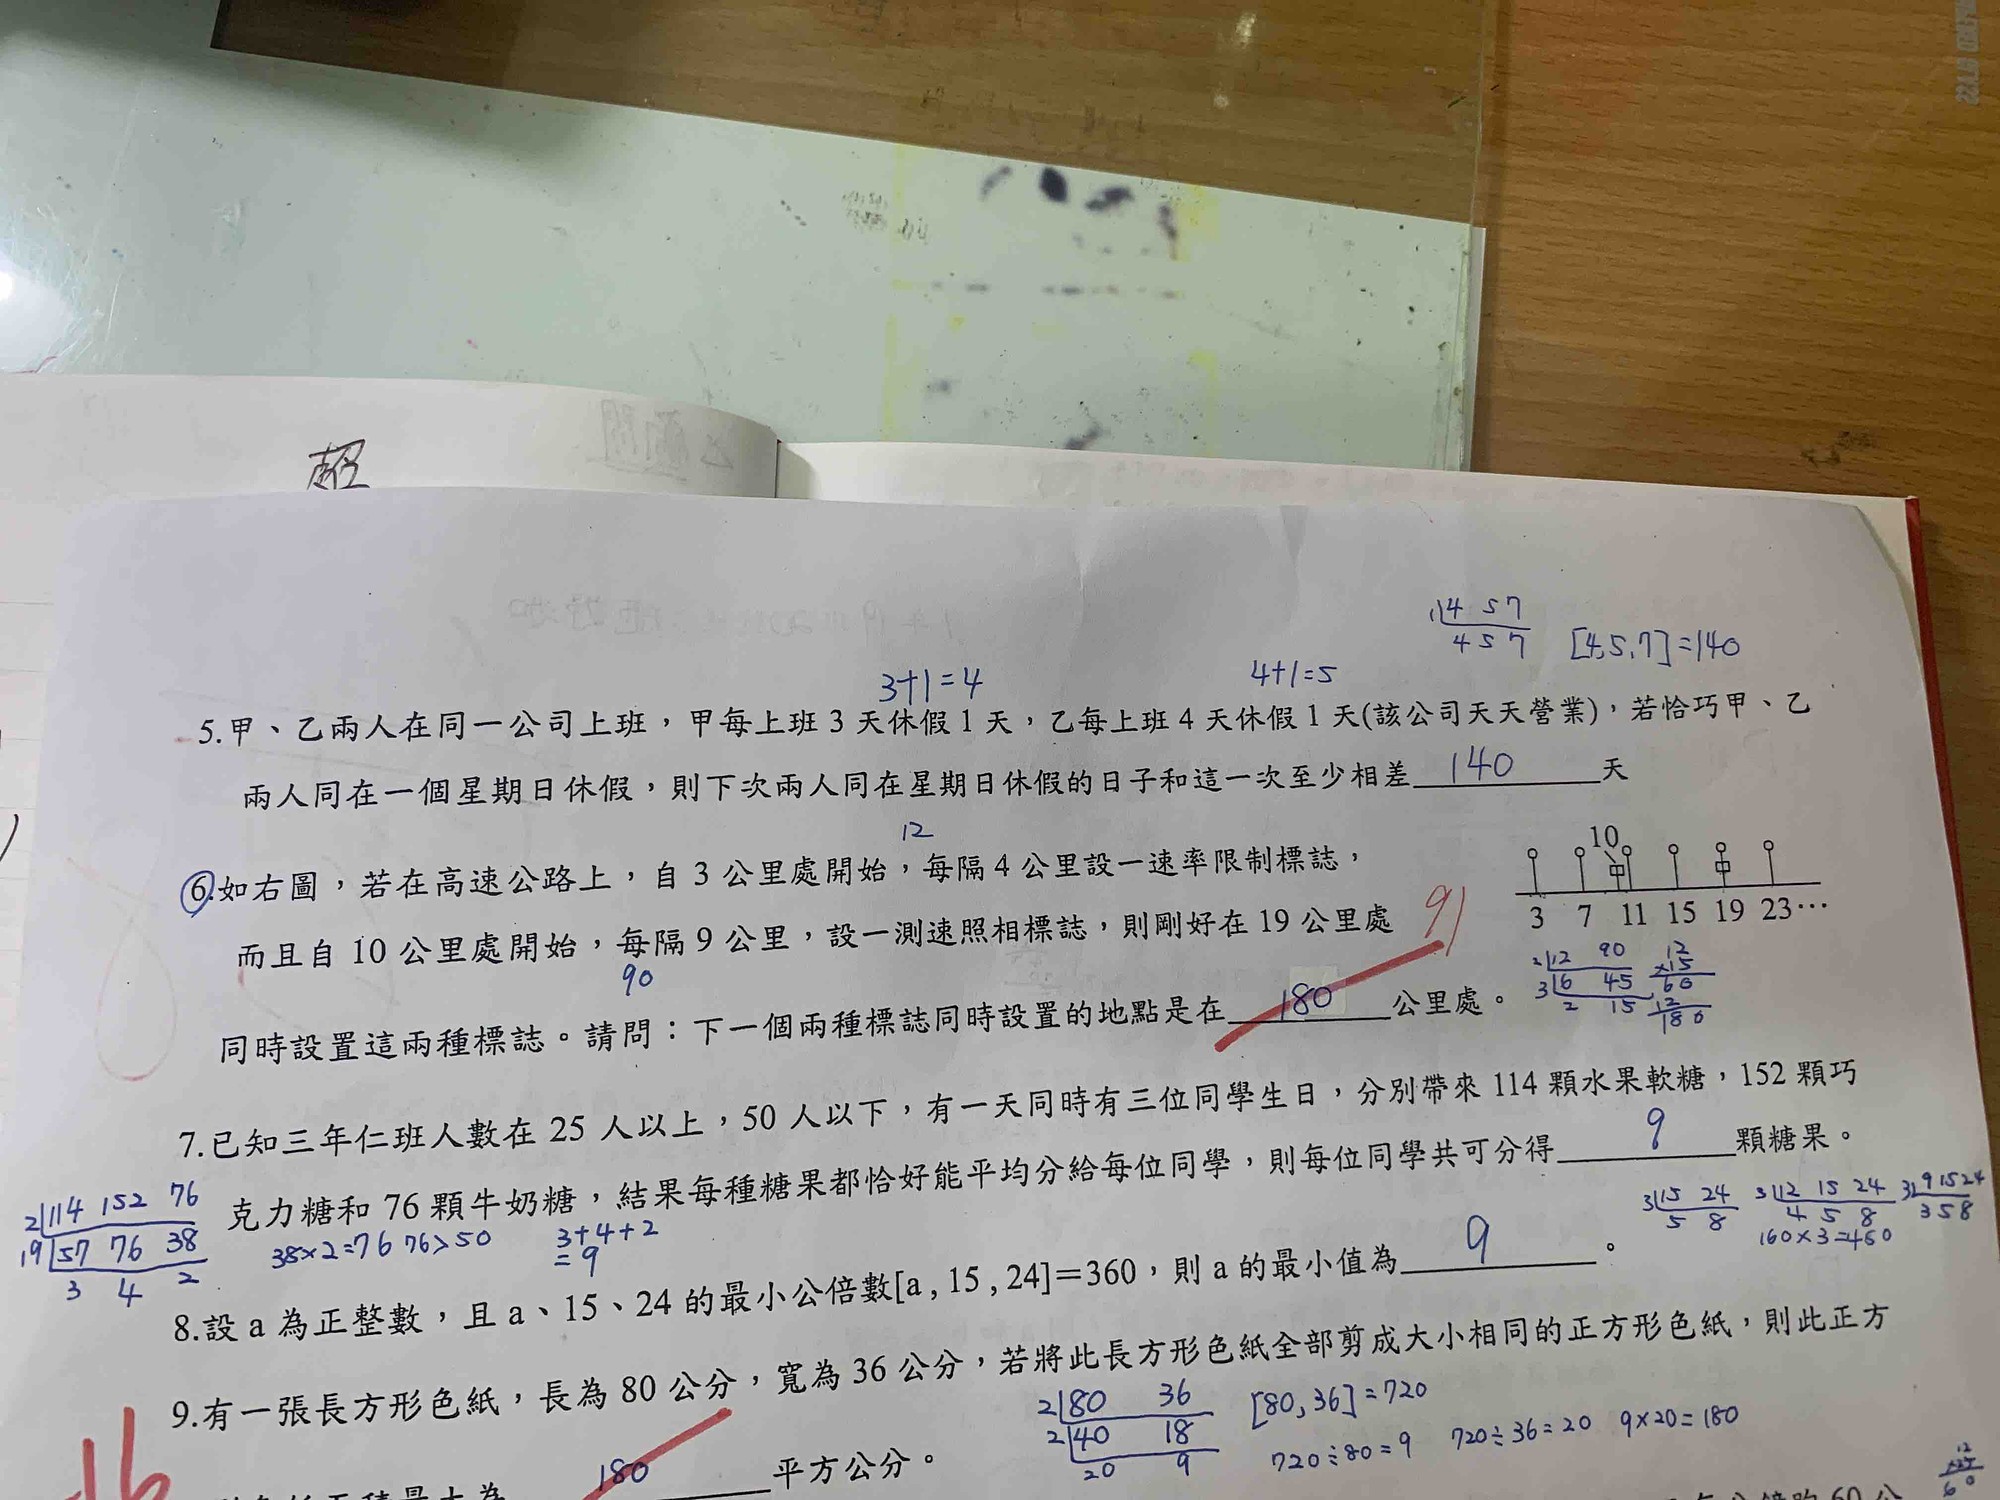 超
1⌊4 5 7
4 5 7
[4,5,7]=140
3+1=4
4+1=5
5.甲、乙兩人在同一公司上班，甲每上班 3 天休假 1 天，乙每上班 4 天休假 1 天(該公司天天營業)，若恰巧甲、乙
兩人同在一個星期日休假，則下次兩人同在星期日休假的日子和這一次至少相差 140 天
12
10
6.如右圖，若在高速公路上，自 3 公里處開始，每隔 4 公里設一速率限制標誌，
3 7 11 15 19 23…
而且自 10 公里處開始，每隔 9 公里，設一測速照相標誌，則剛好在 19 公里處
91
90
同時設置這兩種標誌。請問：下一個兩種標誌同時設置的地點是在 180 公里處。
2⌊12 90
3⌊6 45
2 15
12
×15
60
12
180
7.已知三年仁班人數在 25 人以上，50 人以下，有一天同時有三位同學生日，分別帶來 114 顆水果軟糖，152 顆巧
克力糖和 76 顆牛奶糖，結果每種糖果都恰好能平均分給每位同學，則每位同學共可分得 9 顆糖果。
2⌊114 152 76
19⌊57 76 38
3 4 2
38×2=76 76>50
3+4+2
=9
3⌊15 24
5 8
3⌊12 15 24
4 5 8
160×3=480
3⌊9 15 24
3 5 8
8.設 a 為正整數，且 a、15、24 的最小公倍數[a , 15 , 24]＝360，則 a 的最小值為 9 。
9.有一張長方形色紙，長為 80 公分，寬為 36 公分，若將此長方形色紙全部剪成大小相同的正方形色紙，則此正方
2⌊80 36
2⌊40 18
20 9
[80,36]=720
720÷80=9
720÷36=20
9×20=180
180 平方公分。